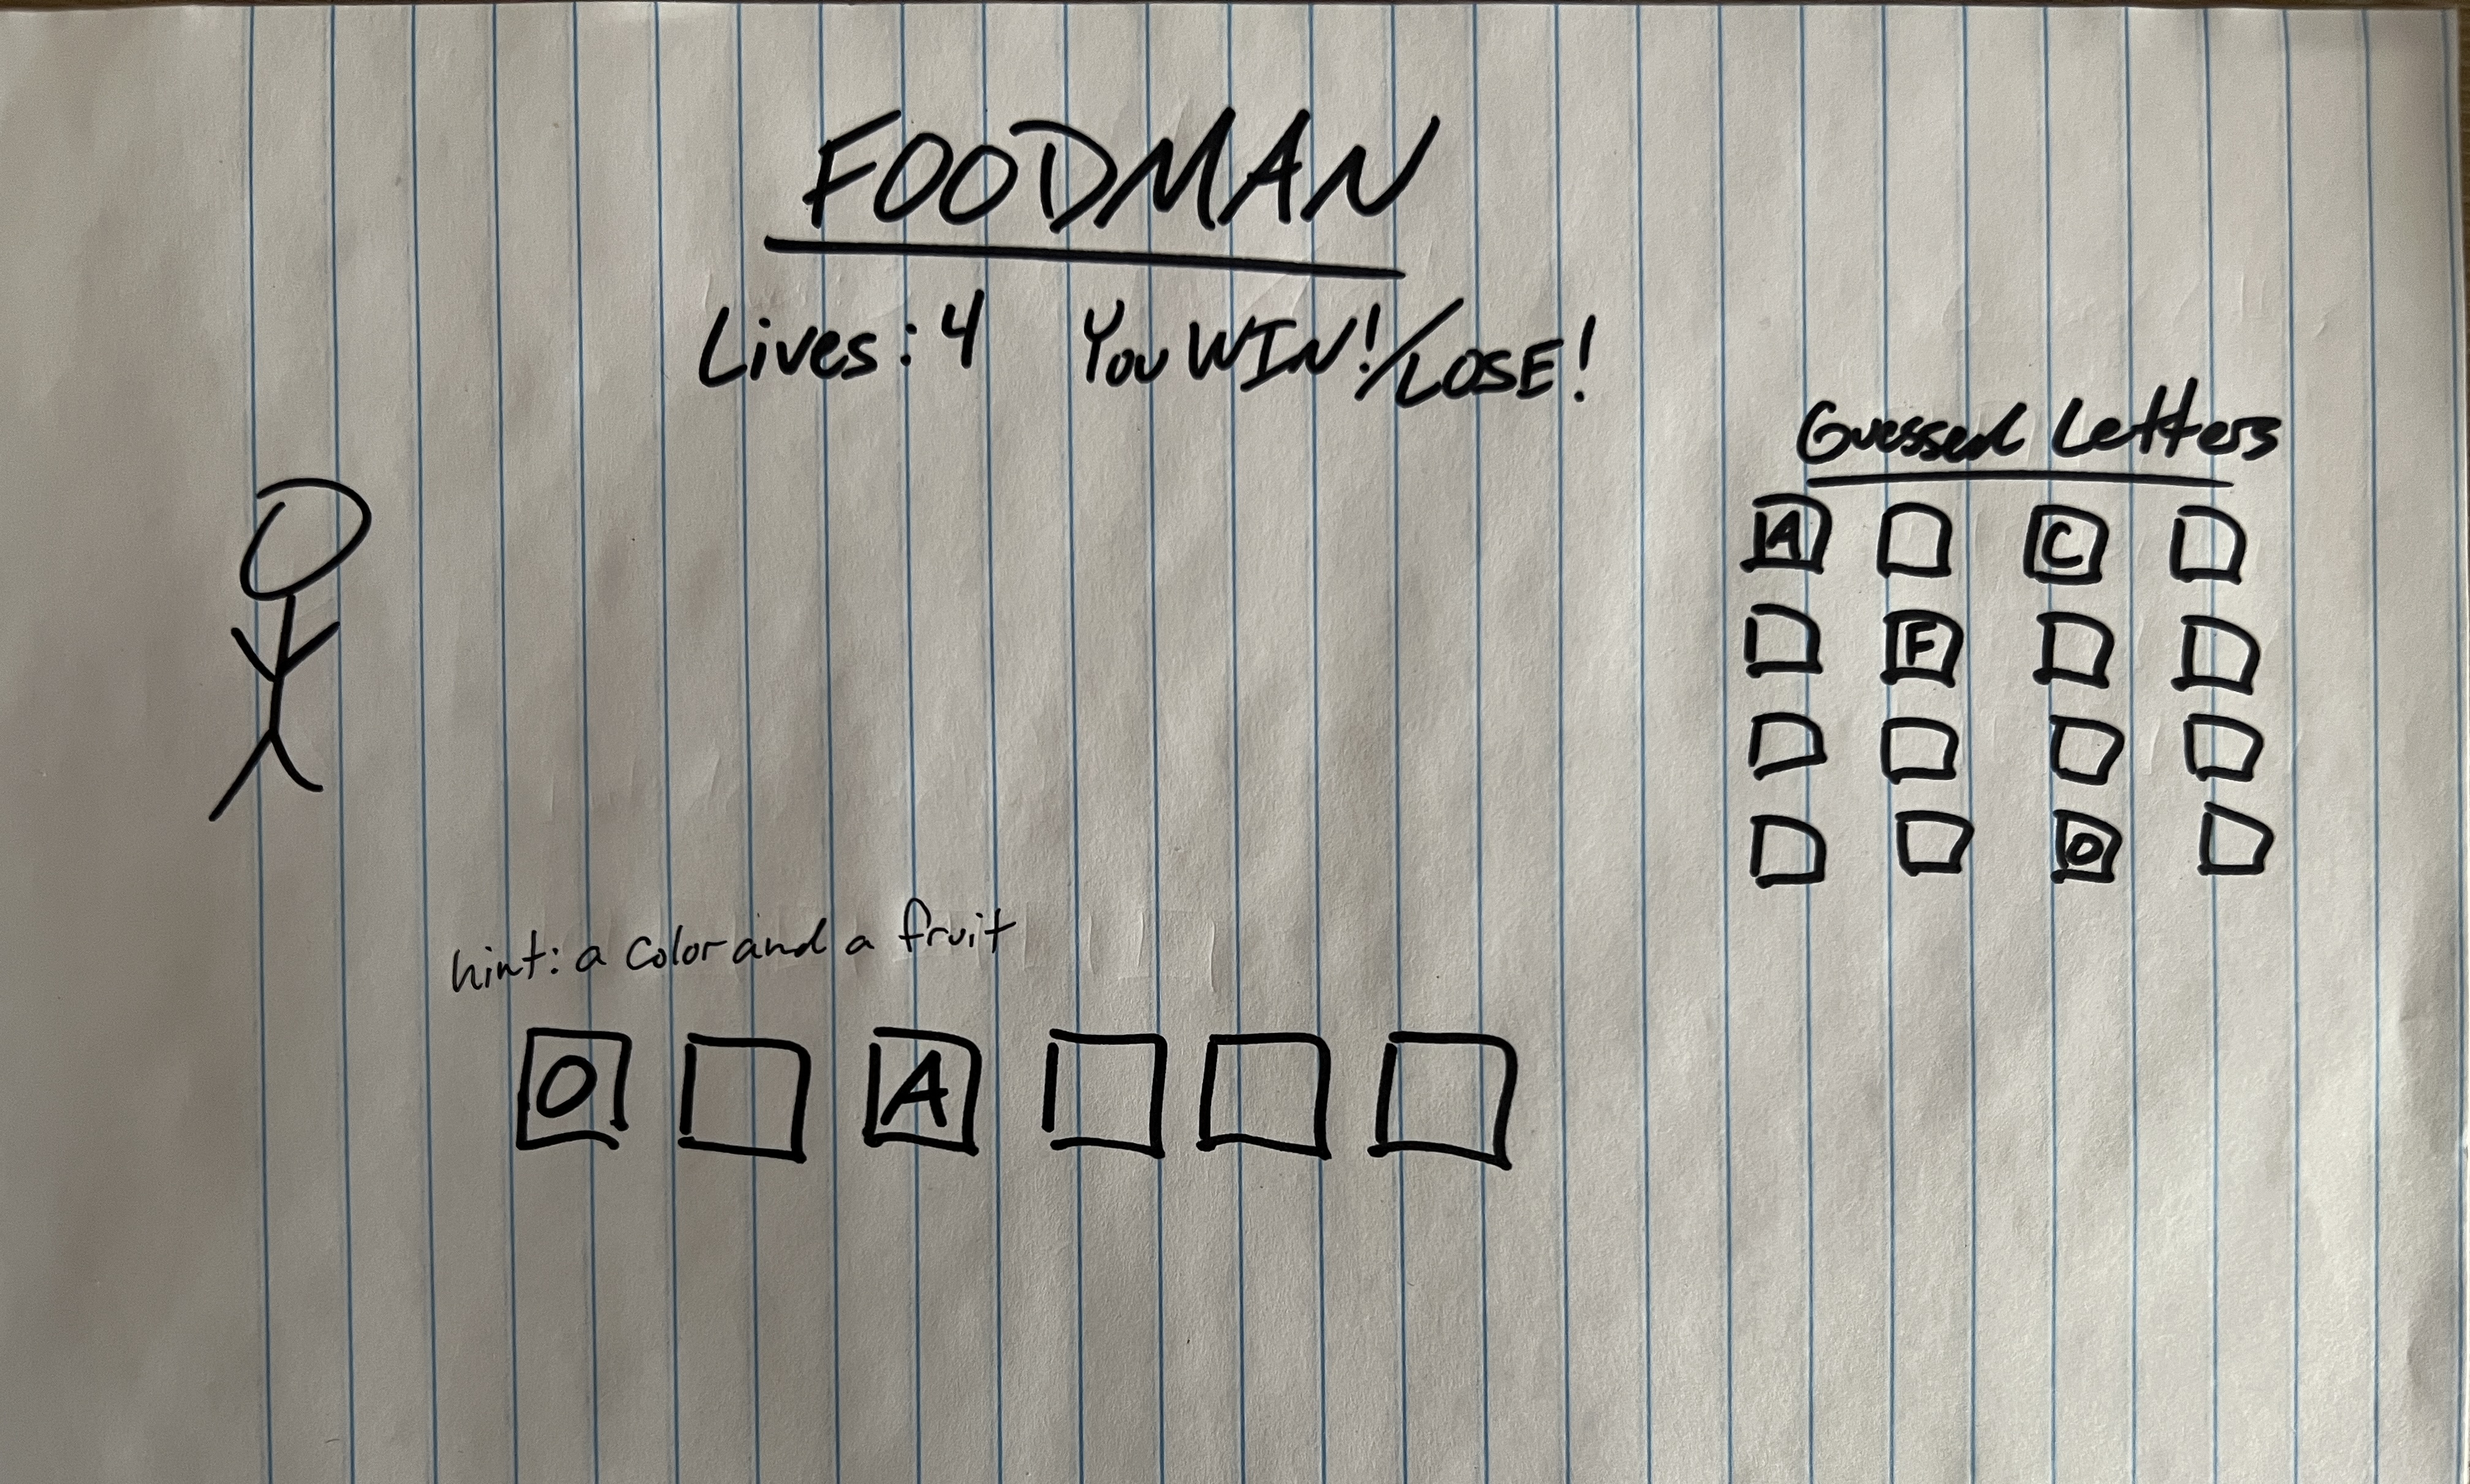 FOODMAN
Lives: 4 You WIN!/LOSE!
Guessed Letters
A C
F
O
hint: a color and a fruit
O A